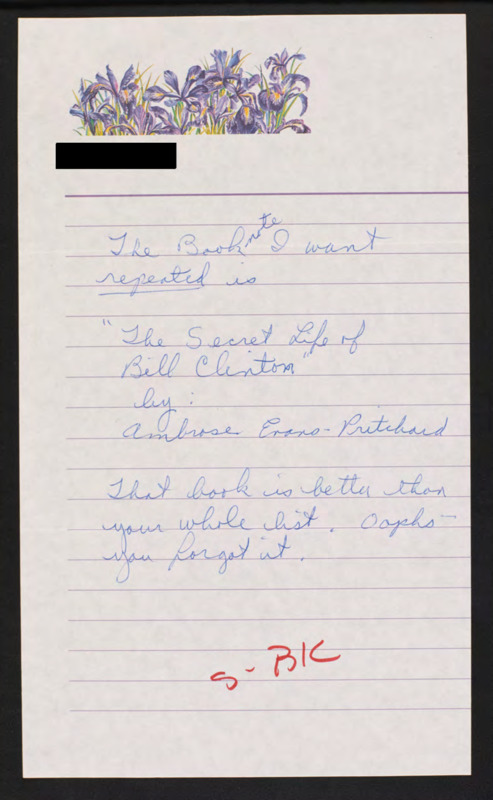 The Booknote I want
repeated is
"The Secret Life of
Bill Clinton"
by:
Ambrose Evans-Pritchard
That book is better than
your whole list. Oophs-
you forgot it.
S-BK